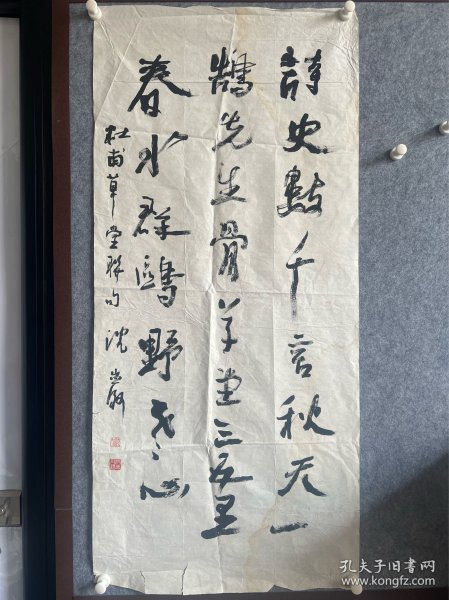 詩史數千言秋天一
鵠先生骨草堂三五里
春水群鷗野老心
杜甫草堂聯句 沈
孔夫子旧书网
www.kongfz.com